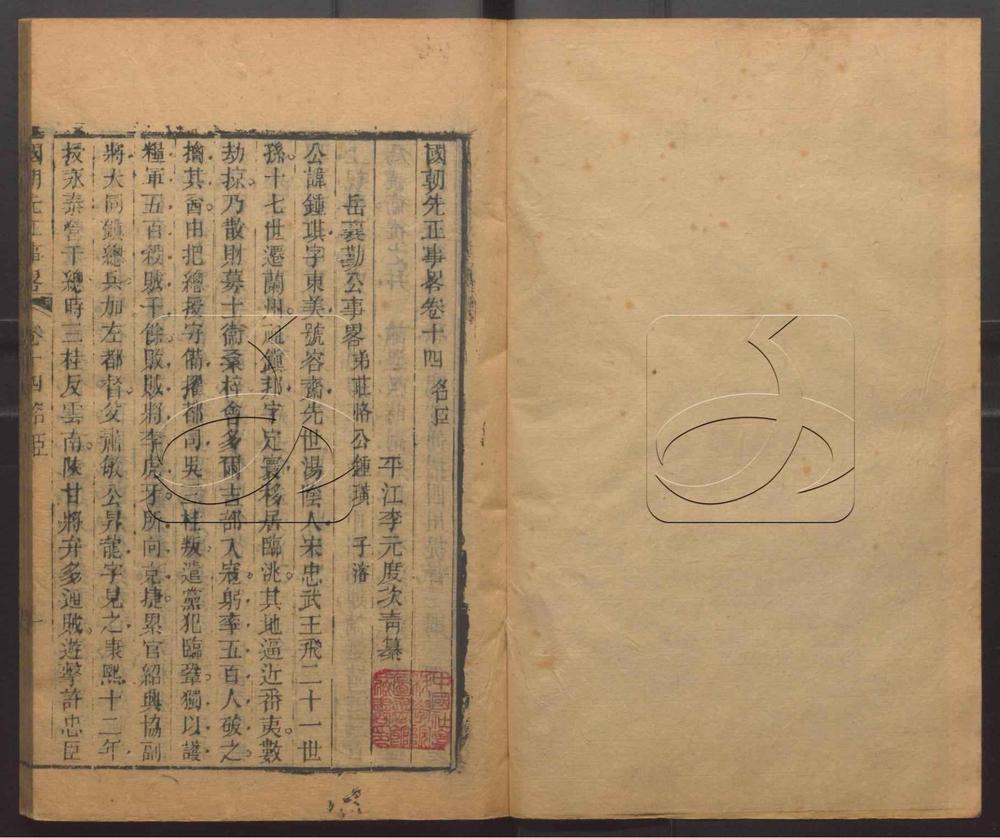 國朝先正事畧卷十四 名臣
平江李元度次青纂
岳襄勤公事畧 弟莊恪公鍾璜 子濬
公諱鍾琪字東美號容齋先世湯陰人宋忠武王飛二十一世
孫十七世遷蘭州祖鎮邦字定寰移居臨洮其地逼近番夷數
劫掠乃散財募士衞桑梓會多爾吉部入寇躬率五百人破之
擒其酋由把總授守備擢都司吳三桂叛遣黨犯臨鞏獨以護
糧軍五百殺賊千餘敗賊將李虎牙所向克捷累官紹興協副
將大同鎮總兵加左都督父肅敏公昇龍字見之康熙十二年
拔永泰營千總時三桂反雲南陝甘將弁多通賊遊擊許忠臣
國朝先正事畧 卷十四名臣 一